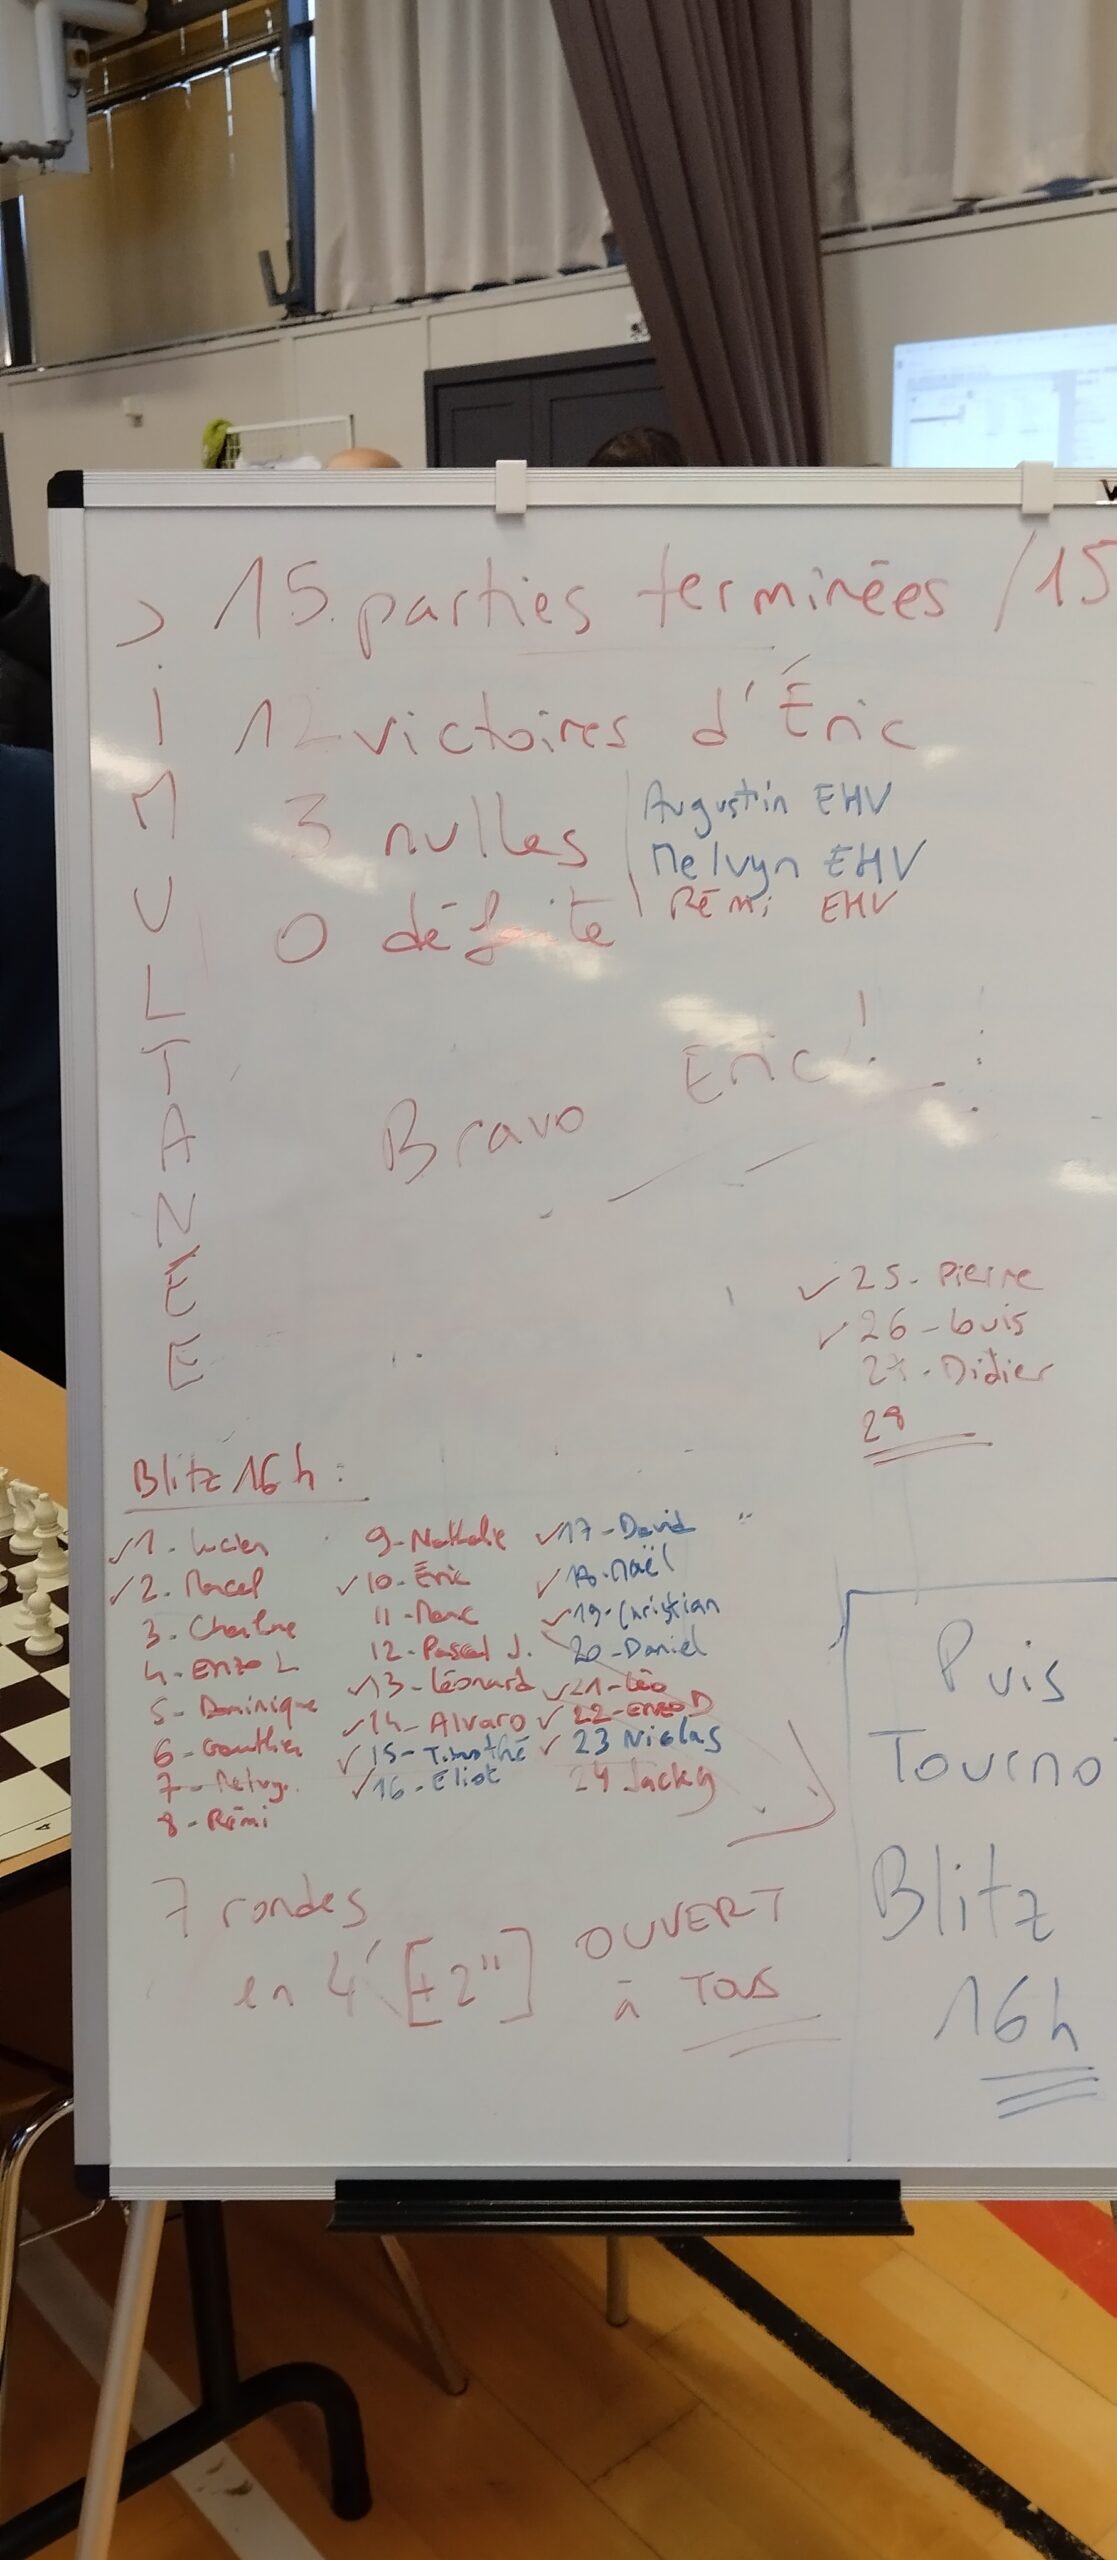 SIMULTANEE
15 parties terminées / 15
12 victoires d'Éric
3 nulles
Augustin EHV
Melvyn EHV
Rémi EHV
0 défaite
Bravo Eric !
25- Pierre
26- Louis
27- Didier
28
Blitz 16h :
1- Lucien
2- Marcel
3- Charline
4- Enzo L
5- Dominique
6- Gauthier
7- Melvyn
8- Rémi
9- Nathalie
10- Éric
11- Marc
12- Pascal J.
13- Léonard
14- Alvaro
15- Timothé
16- Eliot
17- David
18- Maël
19- Christian
20- Daniel
21- Léo
22- Enzo D
23 Nicolas
24 Jacky
7 rondes
en 4' [+2"]
OUVERT
à TOUS
Puis
Tournoi
Blitz
16h